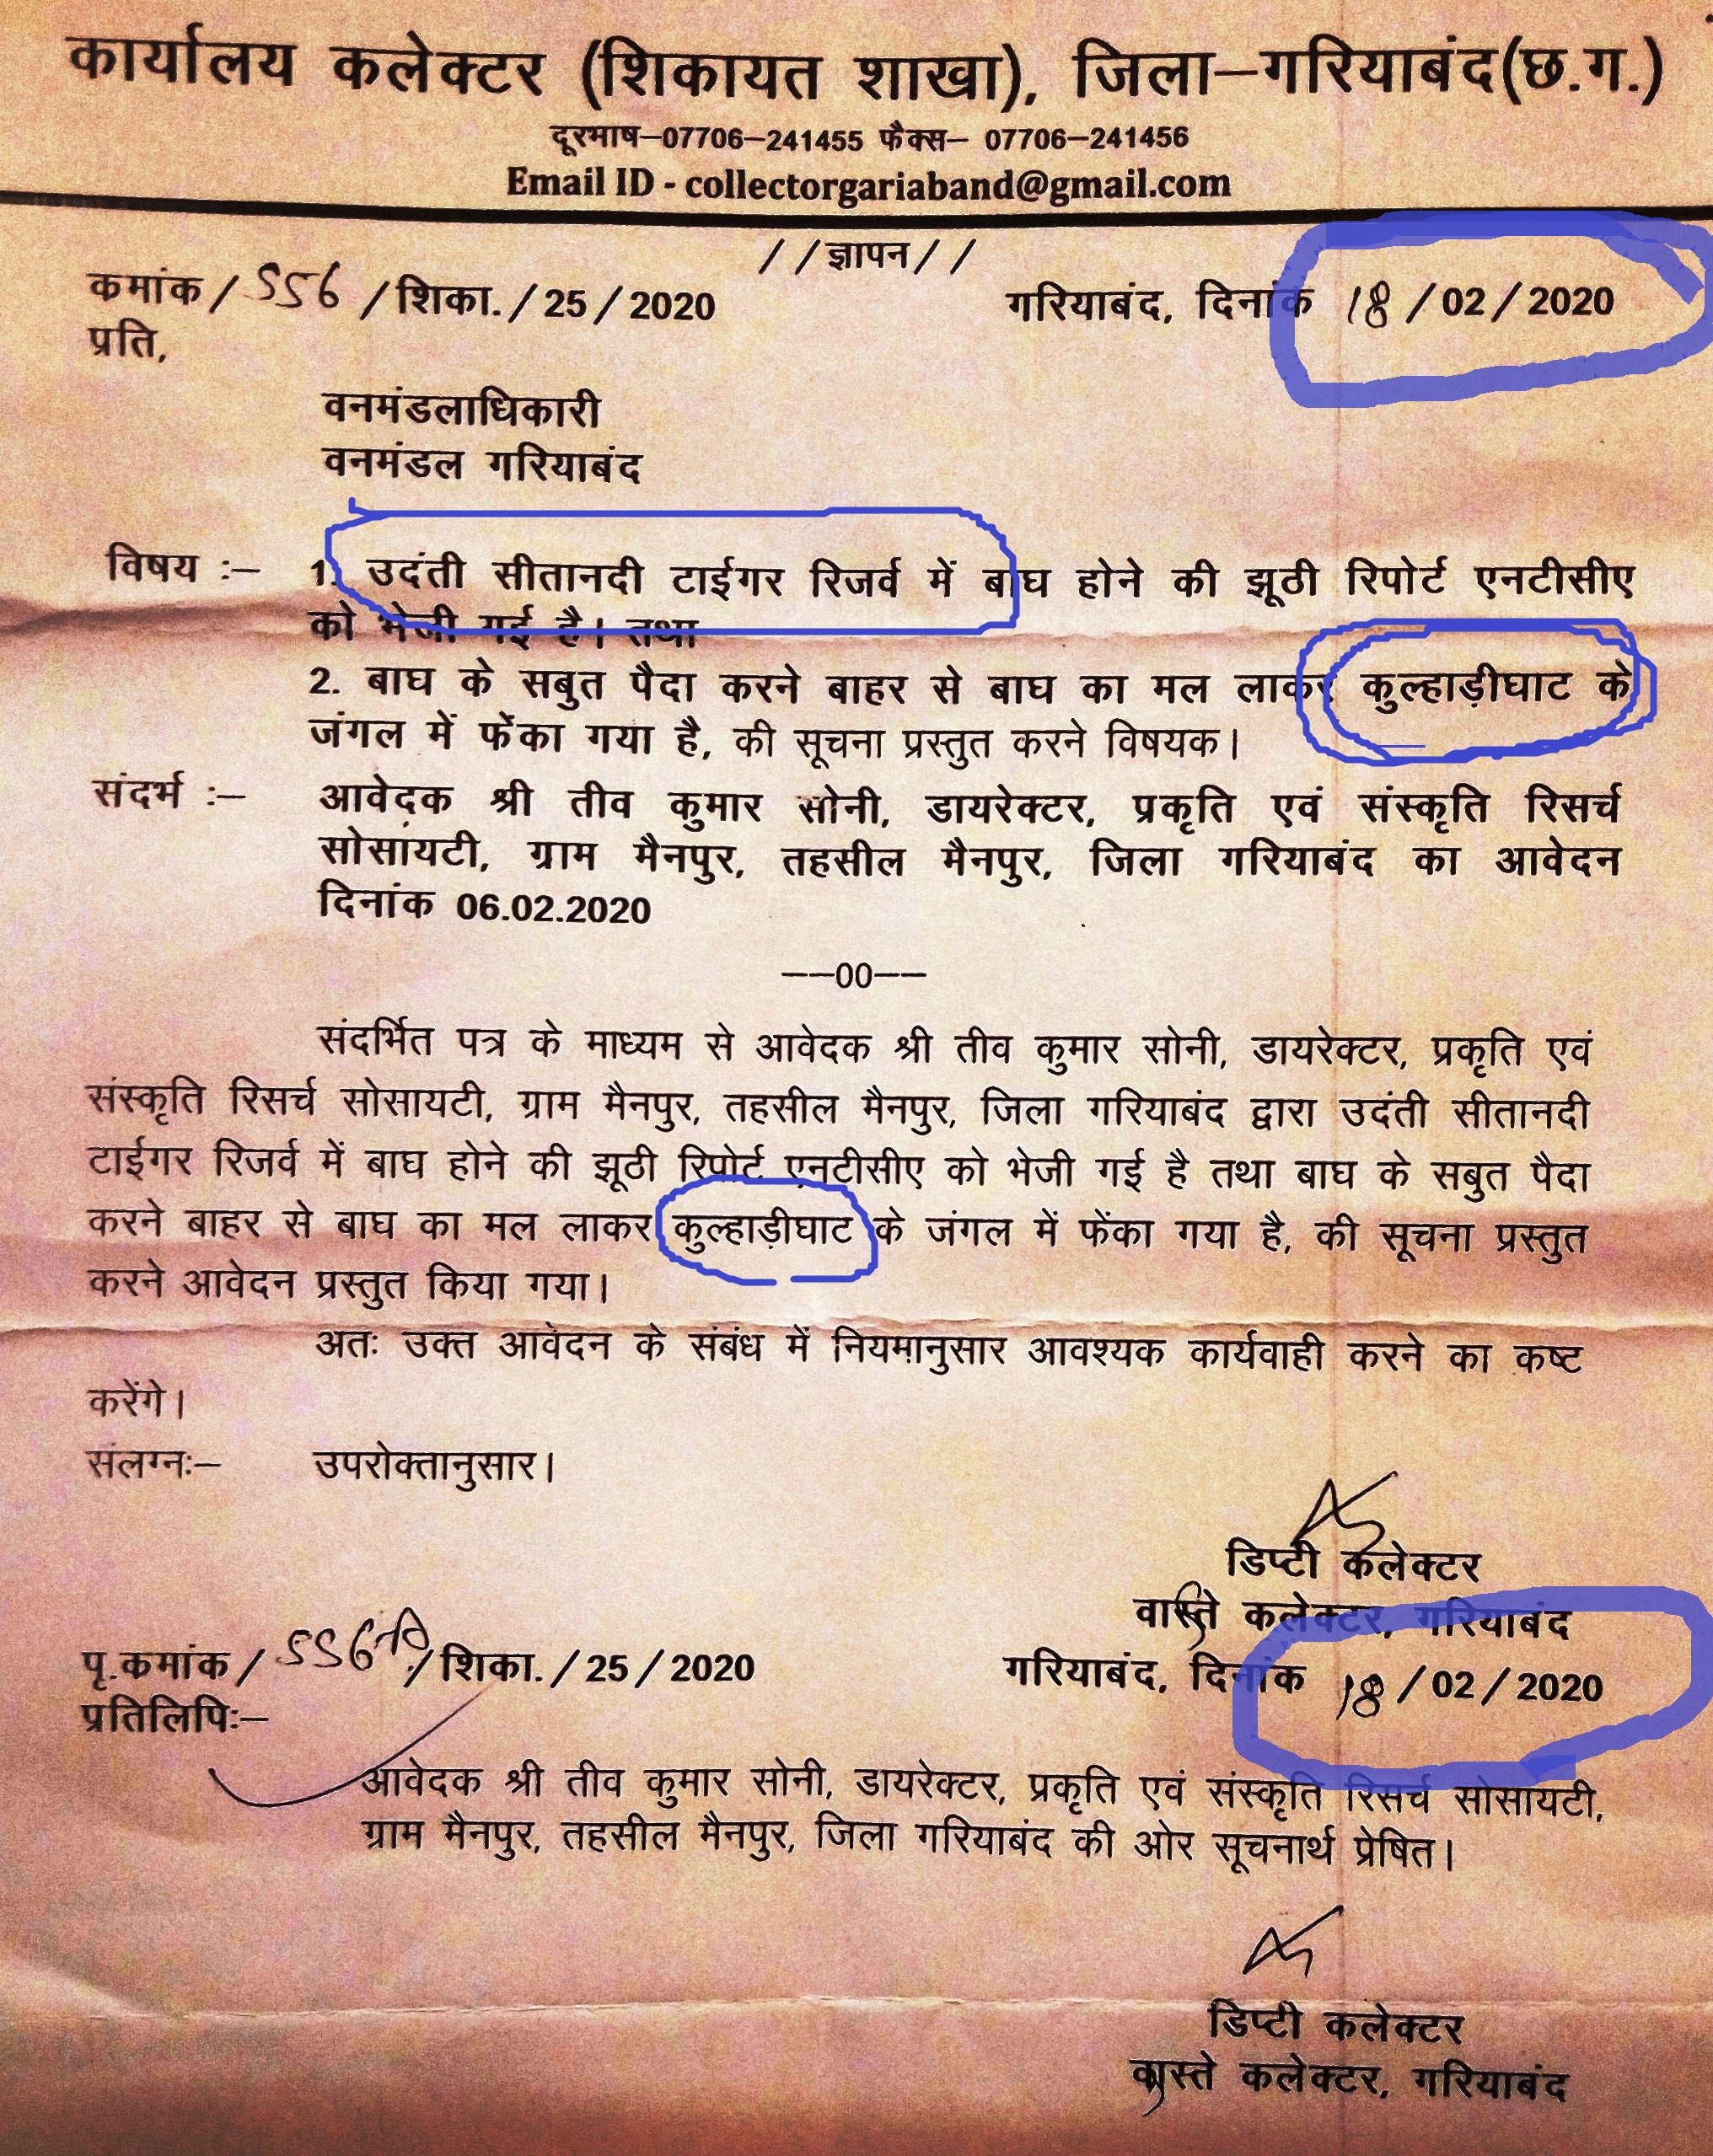 कार्यालय कलेक्टर (शिकायत शाखा), जिला–गरियाबंद(छ.ग.)
दूरभाष–07706–241455 फैक्स– 07706–241456
Email ID - collectorgariaband@gmail.com
//ज्ञापन//
कमांक/556/शिका./25/2020 गरियाबंद, दिनांक 18/02/2020
प्रति,
वनमंडलाधिकारी
वनमंडल गरियाबंद
विषय :– 1. उदंती सीतानदी टाईगर रिजर्व में बाघ होने की झूठी रिपोर्ट एनटीसीए
को भेजी गई है। तथा
2. बाघ के सबुत पैदा करने बाहर से बाघ का मल लाकर कुल्हाड़ीघाट के
जंगल में फेंका गया है, की सूचना प्रस्तुत करने विषयक।
संदर्भ :– आवेदक श्री तीव कुमार सोनी, डायरेक्टर, प्रकृति एवं संस्कृति रिसर्च
सोसायटी, ग्राम मैनपुर, तहसील मैनपुर, जिला गरियाबंद का आवेदन
दिनांक 06.02.2020
––00––
संदर्भित पत्र के माध्यम से आवेदक श्री तीव कुमार सोनी, डायरेक्टर, प्रकृति एवं
संस्कृति रिसर्च सोसायटी, ग्राम मैनपुर, तहसील मैनपुर, जिला गरियाबंद द्वारा उदंती सीतानदी
टाईगर रिजर्व में बाघ होने की झूठी रिपोर्ट एनटीसीए को भेजी गई है तथा बाघ के सबुत पैदा
करने बाहर से बाघ का मल लाकर कुल्हाड़ीघाट के जंगल में फेंका गया है, की सूचना प्रस्तुत
करने आवेदन प्रस्तुत किया गया।
अतः उक्त आवेदन के संबंध में नियमानुसार आवश्यक कार्यवाही करने का कष्ट
करेंगे।
संलग्नः– उपरोक्तानुसार।
डिप्टी कलेक्टर
वास्ते कलेक्टर, गरियाबंद
पृ.कमांक/556A/शिका./25/2020 गरियाबंद, दिनांक 18/02/2020
प्रतिलिपिः–
आवेदक श्री तीव कुमार सोनी, डायरेक्टर, प्रकृति एवं संस्कृति रिसर्च सोसायटी,
ग्राम मैनपुर, तहसील मैनपुर, जिला गरियाबंद की ओर सूचनार्थ प्रेषित।
डिप्टी कलेक्टर
वास्ते कलेक्टर, गरियाबंद